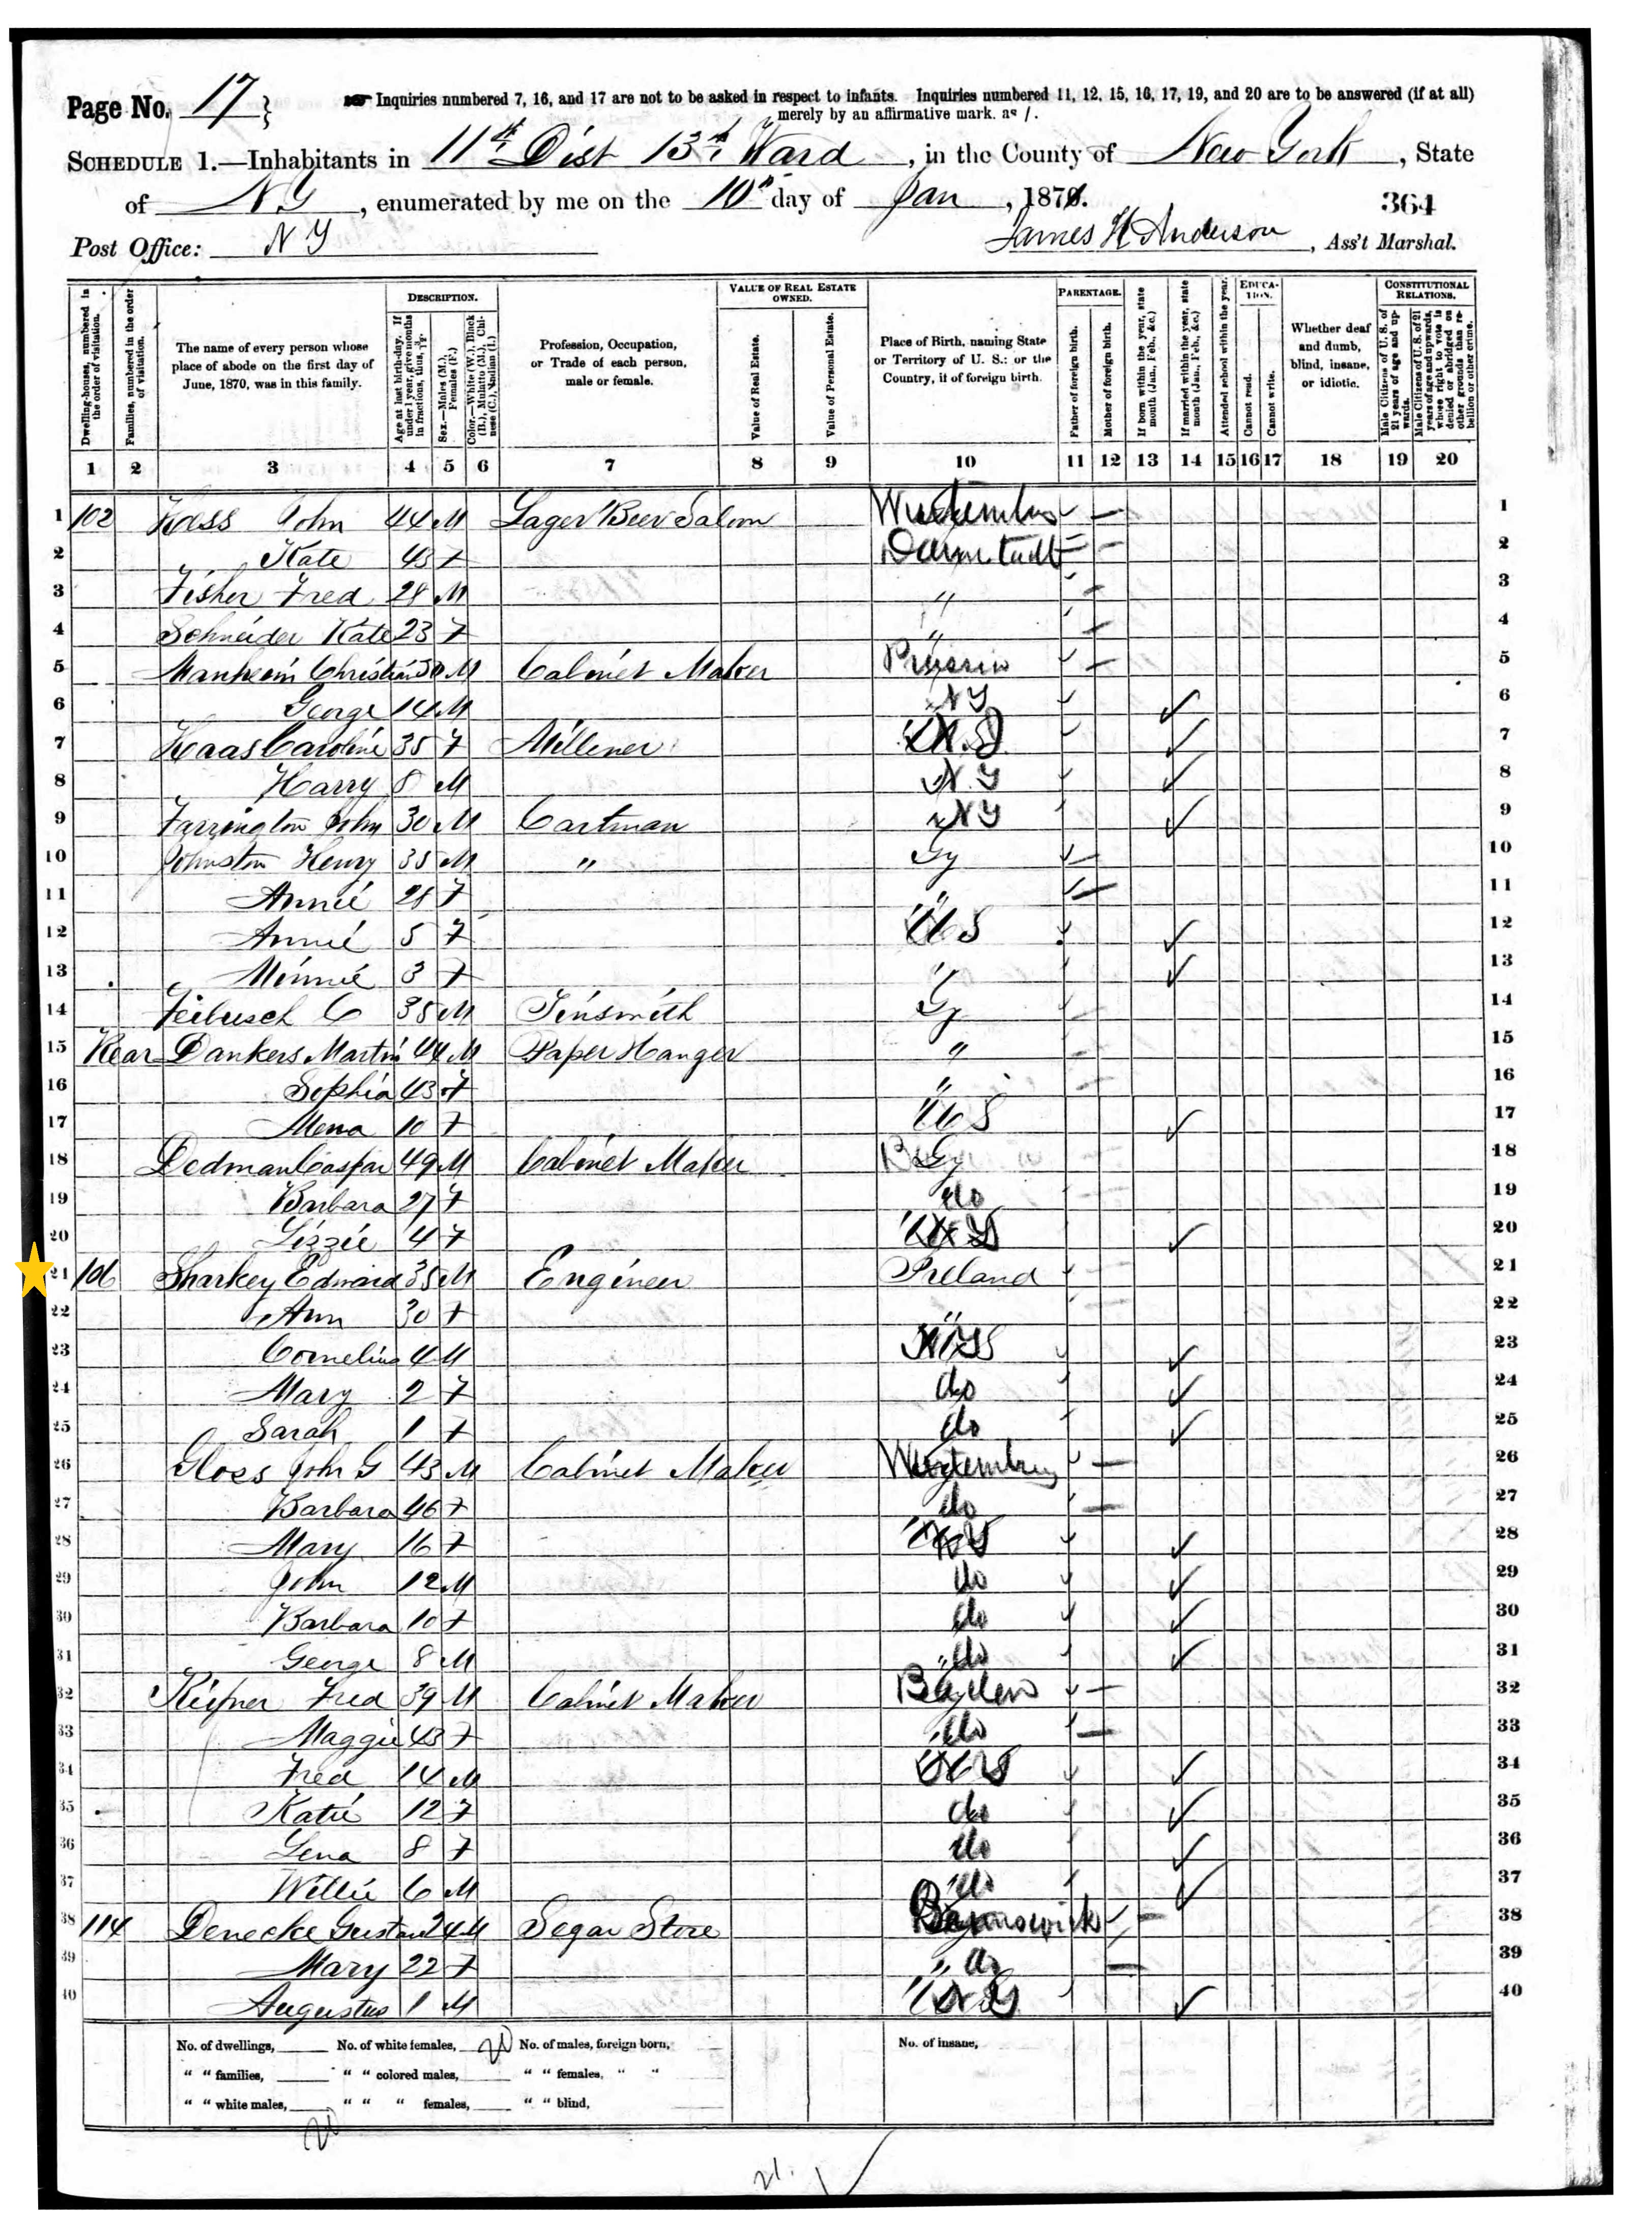 Page No. 17 }
Inquiries numbered 7, 16, and 17 are not to be asked in respect to infants. Inquiries numbered 11, 12, 15, 16, 17, 19, and 20 are to be answered (if at all)
merely by an affirmative mark, as /.
SCHEDULE 1.—Inhabitants in 11th Dist 13th Ward, in the County of New York, State
of NY, enumerated by me on the 10th day of Jan, 1871.
364
Post Office: NY James H Anderson, Ass't Marshal.
Dwelling-houses, numbered in the order of visitation.
Families, numbered in the order of visitation.
The name of every person whose place of abode on the first day of June, 1870, was in this family.
DESCRIPTION.
Age at last birth-day. If under 1 year, give months in fractions, thus,
Sex.—Males (M.), Females (F.)
Color.—White (W.), Black (B.), Mulatto (M.), Chinese (C.), Indian (I.)
Profession, Occupation, or Trade of each person, male or female.
VALUE OF REAL ESTATE OWNED.
Value of Real Estate.
Value of Personal Estate.
Place of Birth, naming State or Territory of U. S.; or the Country, if of foreign birth.
PARENTAGE.
Father of foreign birth.
Mother of foreign birth.
If born within the year, state month (Jan., Feb., &c.)
If married within the year, state month (Jan., Feb., &c.)
EDUCATION.
Attended school within the year.
Cannot read.
Cannot write.
Whether deaf and dumb, blind, insane, or idiotic.
CONSTITUTIONAL RELATIONS.
Male Citizens of U. S. of 21 years of age and upwards.
Male Citizens of U. S. of 21 years of age and upwards, whose right to vote is denied or abridged on other grounds than rebellion or other crime.
1 2 3 4 5 6 7 8 9 10 11 12 13 14 15 16 17 18 19 20
1 102 Hass John 44 M Lager Beer Saloon Wurtemburg 1
2 Kate 43 F Darmstadt 2
3 Fisher Fred 28 M " 3
4 Schneider Kate 23 F " 4
5 Manheim Christian 50 M Cabinet Maker Prussia 5
6 George 14 M NY 6
7 Haas Caroline 35 F Milliner 7
8 Harry 8 M N.Y 8
9 Farrington John 30 M Cartman NY 9
10 Johnston Henry 35 M " Gy 10
11 Annie 28 F " 11
12 Annie 5 F US 12
13 Minnie 3 F " 13
14 Feibusch C 38 M Tinsmith Gy 14
15 Rear Dankers Martin 44 M Paper Hanger " 15
16 Sophia 43 F " 16
17 Mena 10 F US 17
18 Dedman Caspar 49 M Cabinet Maker Gy 18
19 Barbara 27 F do 19
20 Lizzie 4 F 20
21 106 Sharkey Edward 35 M Engineer Ireland 21
22 Ann 30 F " 22
23 Cornelius 4 M 23
24 Mary 2 F do 24
25 Sarah 1 F do 25
26 Gloss John G 43 M Cabinet Maker Wurtemburg 26
27 Barbara 46 F do 27
28 Mary 16 F 28
29 John 12 M do 29
30 Barbara 10 F do 30
31 George 8 M do 31
32 Kifner Fred 39 M Cabinet Maker Baden 32
33 Maggie 43 F do 33
34 Fred 14 M 34
35 Katie 12 F do 35
36 Lena 8 F do 36
37 Willie 6 M do 37
38 114 Denecke Gustav 24 M Segar Store Brunswick 38
39 Mary 22 F do 39
40 Augustus 1 M 40
No. of dwellings, No. of white females, No. of males, foreign born, No. of insane,
" " families, " " colored males, " " females, " "
" " white males, " " " females, " " blind,
21.